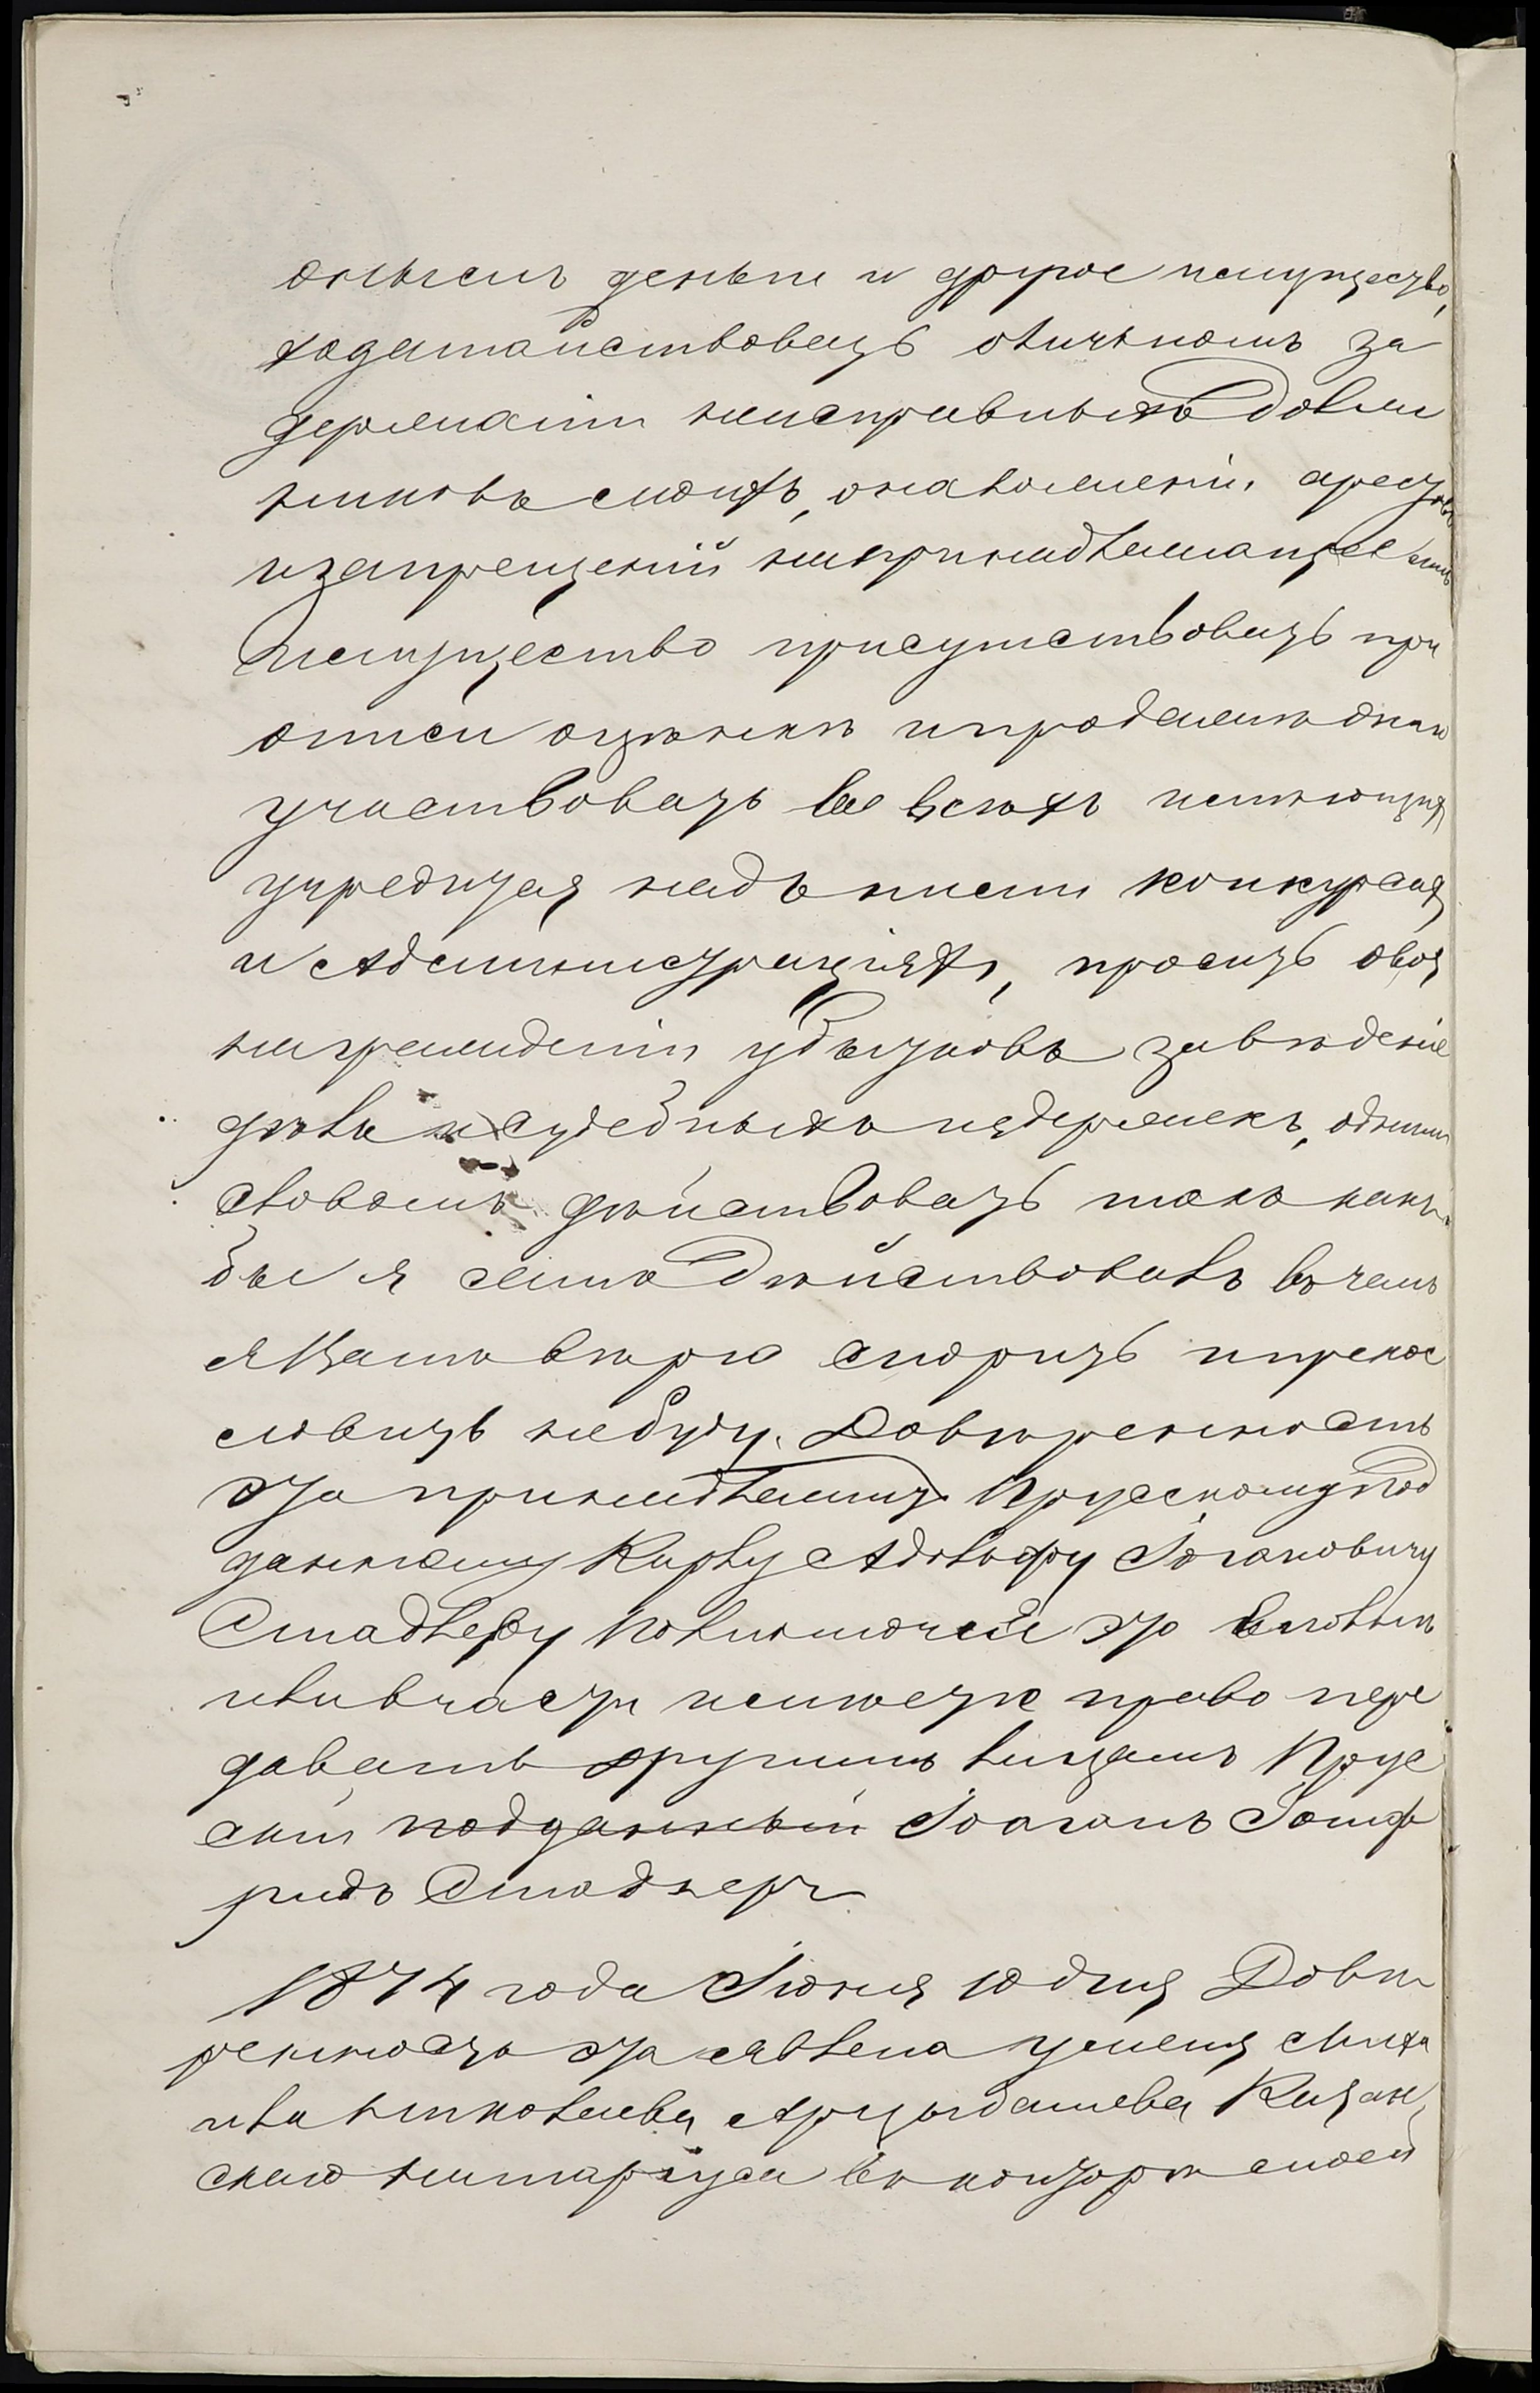 онымъ деньги и другое имущество,
ходатайствовать о личномъ за
держаніи неисправныхъ долж
никовъ моихъ, о наложеніи арестовъ
и запрещеній на принадлежащее имъ
имущество присутствовать при
описи оцѣнкѣ и продажѣ онаго
участвовать во всѣхъ имѣющихъ
учредиться надъ ними конкурсахъ
и Администраціяхъ, просить о воз
награжденіи убытковъ за веденіе
дѣлъ и судебныхъ издержекъ, однимъ
словомъ дѣйствовать такъ какъ
бы я самъ дѣйствовалъ въ чемъ
я Вамъ вѣрю спорить и прекос
ловить не буду. Довѣренность
эта принадлежитъ Прусскому под
данному Карлу Адольфу Іогановичу
Стадлеру полномочіе это въ цѣломъ
или въ части имѣете право пере
давать другимъ лицамъ Прус
скій подданный Іоганъ Готф
ридъ Стадлеръ
1874 года Іюня 10 дня Довѣ
ренность эта явлена у меня Миха
ила Николаева Арцыбашева Казан
скаго нотаріуса въ конторѣ моей